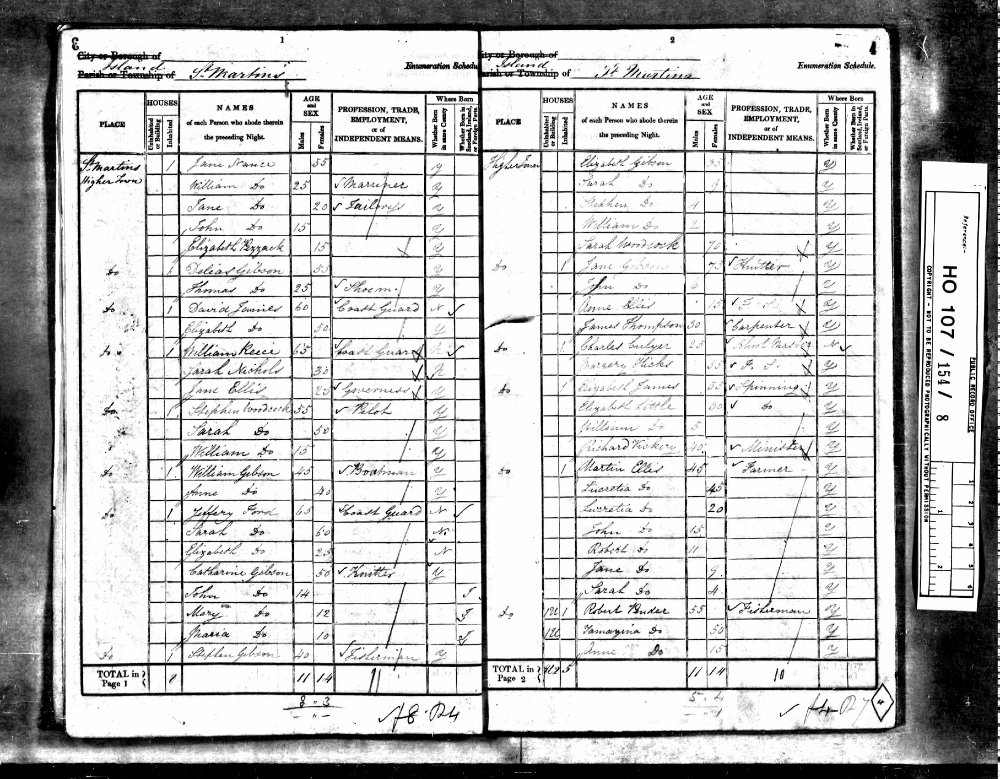 3
1
City or Borough of
Island
Parish or Township of St Martins
Enumeration Schedule
PLACE
HOUSES
Uninhabited or Building
Inhabited
NAMES
of each Person who abode therein the preceding Night.
AGE and SEX
Males
Females
PROFESSION, TRADE, EMPLOYMENT, or of INDEPENDENT MEANS.
Where Born
Whether Born in same County
Whether Born in Scotland, Ireland, or Foreign Parts.
St Martins 1 Jane Nance 55 y
Higher Town William Do 25 Marriner y
Jane Do 20 Tailoress y
John Do 15 y
Elizabeth 15 y
Do 1 Gibson 55 y
Thomas Do 25 Shoem. y
Do 1 David James 60 Coast Guard N
Elizabeth Do 50 y
Do 1 William Reece 65 Coast Guard
Sarah Nichols 30
Jane Ellis 25 Governess y
Do 1 Stephen Woodcock 55 Pilot y
Sarah Do 50 y
William Do 15 y
Do 1 William Gibson 45 Boatman y
Anne Do 40 y
Do 1 Jeffery Ford 65 Coast Guard N
Sarah Do 60 N
Elizabeth Do 25 N
Catharine Gibson 50 Knitter y
John Do 14
Mary Do 12
Maria Do 10
Do 1 Stephen Gibson 40 Fisherman y
TOTAL in Page 1 8 11 14 11
8 3
2
City or Borough of
Island
Parish or Township of St Martins
Enumeration Schedule.
PLACE
HOUSES
Uninhabited or Building
Inhabited
NAMES
of each Person who abode therein the preceding Night.
AGE and SEX
Males
Females
PROFESSION, TRADE, EMPLOYMENT, or of INDEPENDENT MEANS.
Where Born
Whether Born in same County
Whether Born in Scotland, Ireland, or Foreign Parts.
Higher Town Elizabeth Gibson 35 y
Sarah Do 9 y
Stephen Do 4 y
William Do 2 y
Sarah Woodcock 70 y
Do 1 Jane Gibson 75 Knitter y
John Do 6 y
Anne Ellis 15 F. S. y
James Thompson 30 Carpenter y
Do 1 Charles 25 N
Margery Hicks 55 F. S. y
Do Elizabeth James 55 Spinning y
Elizabeth Little 30 Do y
William Do 5 y
Richard Vickery 40 Minister y
Do 1 Martin Ellis 45 Farmer y
Lucretia Do 45 y
Lucretia Do 20 y
John Do 15 y
Robert Do 11 y
Jane Do 9 y
Sarah Do 4 y
Do 1 Robert Pender 55 Fisherman y
Tamazina Do 50 y
Anne Do 15 y
TOTAL in Page 2 5 11 14 10
5 4
4
Reference:-
HO 107/154/8
PUBLIC RECORD OFFICE
COPYRIGHT - NOT TO BE REPRODUCED PHOTOGRAPHICALLY WITHOUT PERMISSION